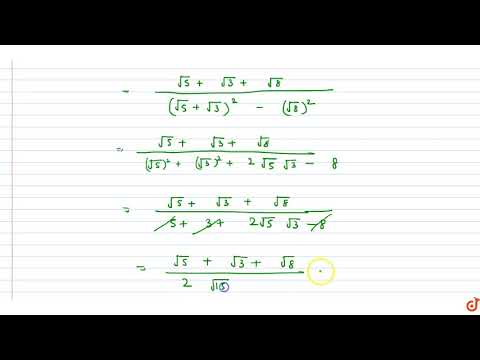 = (√5 + √3 + √8) / ((√5 + √3)² - (√8)²)
= (√5 + √3 + √8) / ((√5)² + (√3)² + 2 √5 √3 - 8)
= (√5 + √3 + √8) / (5 + 3 + 2√5 √3 - 8)
= (√5 + √3 + √8) / (2 √15)